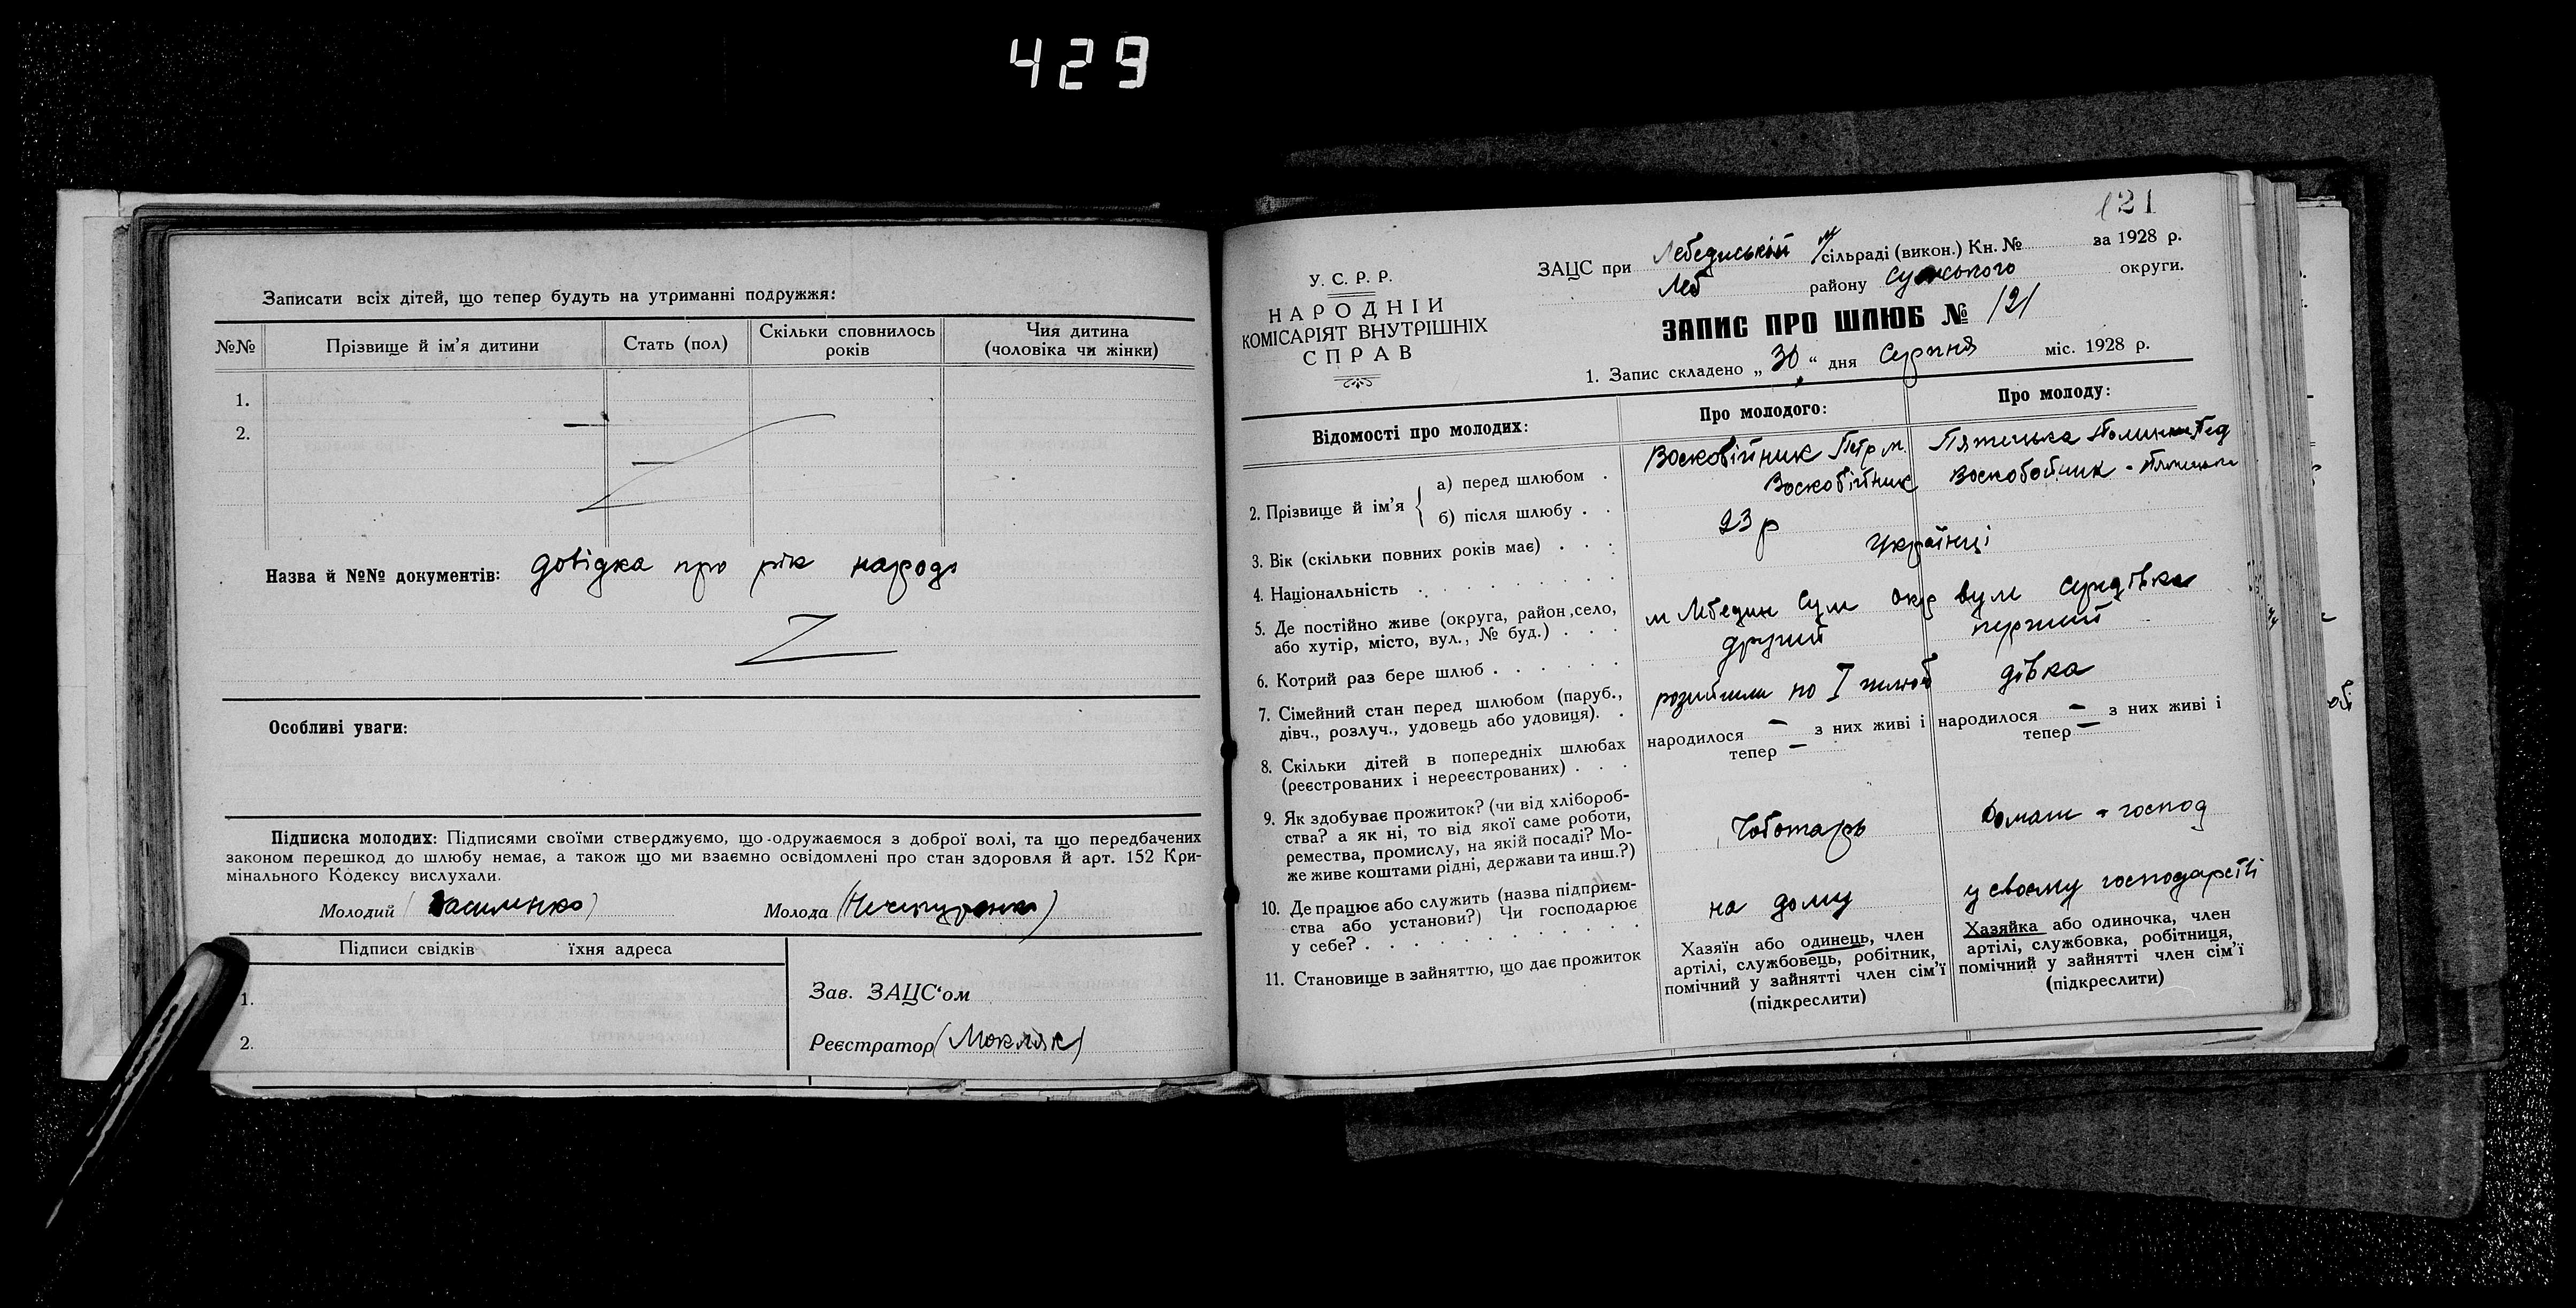 429
Записати всіх дітей, що тепер будуть на утриманні подружжя:
№№ Прізвище й ім'я дитини Стать (пол) Скільки сповнилось років Чия дитина (чоловіка чи жінки)
1.
2.
Назва й №№ документів: довідка про рік народ
Особливі уваги:
Підписка молодих: Підписями своїми стверджуємо, що одружаємося з доброї волі, та що передбачених
законом перешкод до шлюбу немає, а також що ми взаємно освідомлені про стан здоровля й арт. 152 Кри-
мінального Кодексу вислухали.
Молодий (Василенко) Молода (Нечипуренко)
Підписи свідків їхня адреса
1.
2.
Зав. ЗАЦС'ом
Реєстратор (Мокляк)
121
У. С. Р. Р.
НАРОДНІЙ
КОМІСАРІЯТ ВНУТРІШНІХ
СПРАВ
ЗАЦС при Лебединській м/сільраді (викон.) Кн. № за 1928 р.
Леб району Сумського округи.
ЗАПИС ПРО ШЛЮБ № 121
1. Запис складено „30“ дня Серпня міс. 1928 р.
Відомості про молодих: Про молодого: Про молоду:
2. Прізвище й ім'я { а) перед шлюбом . Восковійник Петр м. Пятецька
б) після шлюбу . . Воскобійник Воскобойник -
3. Вік (скільки повних років має) . . . 23 р
4. Національність . . . . . . . Українці
5. Де постійно живе (округа, район, село,
або хутір, місто, вул., № буд.) . . . м Лебедин Сум окр вул
6. Котрий раз бере шлюб . . . . . . другий перший
7. Сімейний стан перед шлюбом (паруб.,
дівч., розлуч., удовець або удовиця). . по I шлюб дівка
8. Скільки дітей в попередніх шлюбах
(реєстрованих і нереєстрованих) . . .
народилося – з них живі і
тепер –
народилося – з них живі і
тепер –
9. Як здобуває прожиток? (чи від хлібороб-
ства? а як ні, то від якої саме роботи,
ремества, промислу, на якій посаді? Мо-
же живе коштами рідні, держави та инш.?)
Чоботарь Домаш - господ
10. Де працює або служить (назва підприєм-
ства або установи?) Чи господарює
у себе? . . . . . . . . . . . .
на дому у своєму господарстві
11. Становище в зайняттю, що дає прожиток
Хазяїн або одинець, член
артілі, службовець, робітник,
помічний у зайнятті член сім'ї
(підкреслити)
Хазяйка або одиночка, член
артілі, службовка, робітниця,
помічний у зайнятті член сім'ї
(підкреслити)